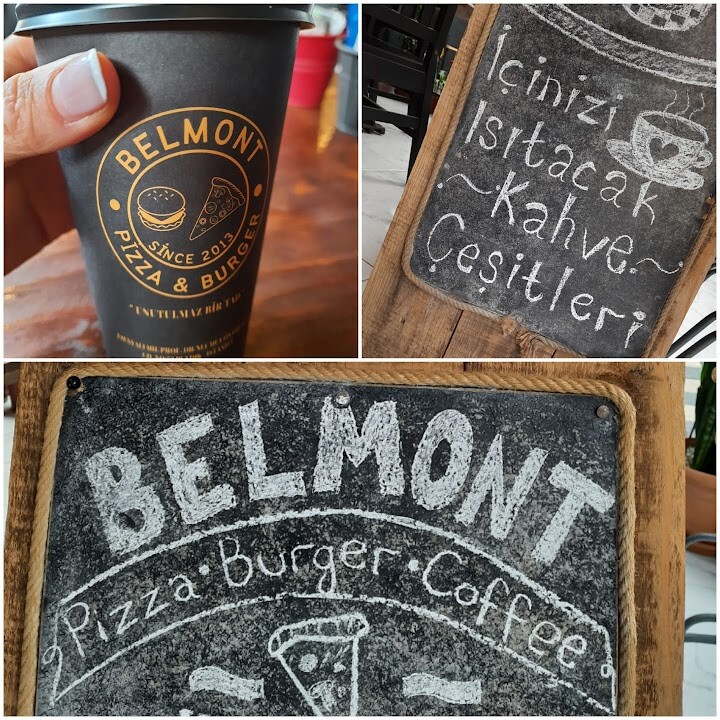 BELMONT
SİNCE 2013
PİZZA & BURGER
UNUTULMAZ BİR TAD
İçinizi
Isıtacak
~Kahve~
Çeşitleri
BELMONT
Pizza • Burger • Coffee